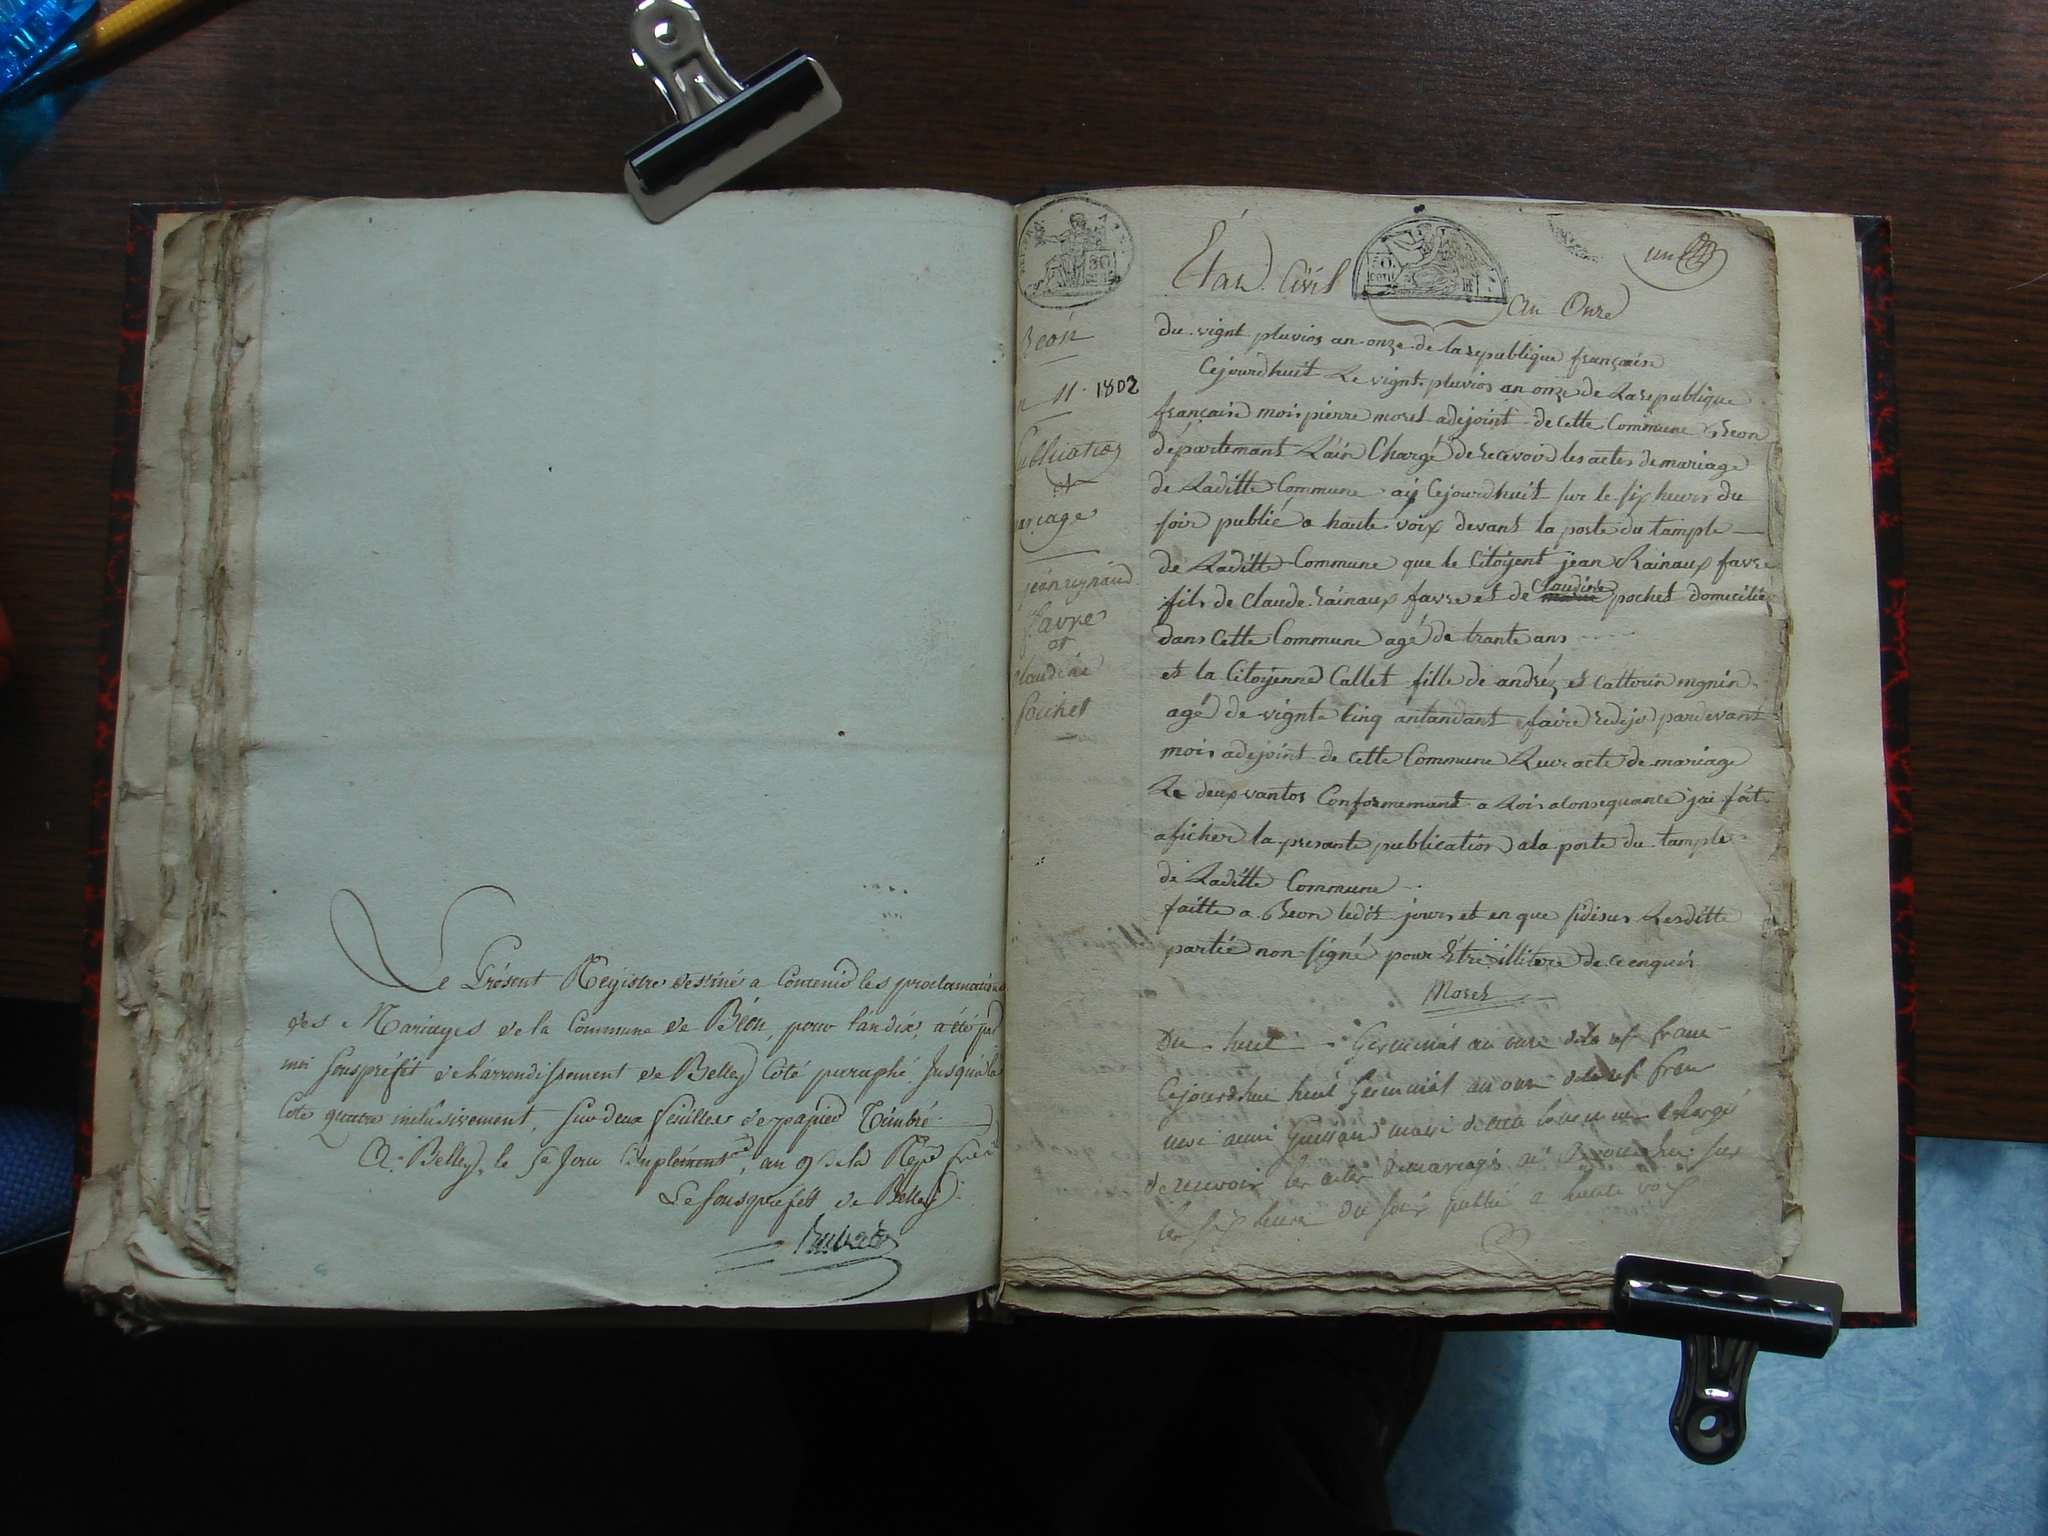 Le Présent Régistre destiné a Contenir les proclamations
des Mariages de la Commune de Béon, pour l'an dix, a été par
moi Souspréfet de l'arrondissement de Belley Coté paraphé Jusqu'a la
Cote quatre inclusivement, sur deux feuilles de papier Timbré
A Belley, le 5e Jour Complément.re, an 9 de la Répe frse
Le Souspréfet de Belley
Béon
n 11. 1802
Publication
et
mariage
jean reynaud
favre
et
claudine
pochet
Etat Civil
un
An Onze
du vignt pluvios an onze de la republique françaisse
Cejourdhuit Le vignt pluvios an onze de La republique
françaisse mois pierre morel adejoint de cette Commune Beon
départemant L'ain Chargé de recevoir les actes de mariage
de Laditte Commune ay Cejourdhuit sur le six heures du
soir publié a haute voix devant la porte du tample
de Laditte Commune que le Citoyent jean Rainaux favre
fils de Claude rainaux favre et de claudine pochet domicilié
dans Cette Commune agé de trante ans
et la Citoyenne Callet fille de andréz et Cattorin mgnin
agé de vignte Cinq antandant faire redijé pardevant
mois adejoint de Cette Commune Leur acte de mariage
Le deux vantos Conformemant a Lois a Consequance j'ai fait
aficher la presante publication a la porte du tample
de Laditte Commune
faitte a Beon ledit jours et en que sidisus Lesditte
partié non signé pour Etre illitere de ce enquis
Morel
Du huit Germinal an onze de la rep. franc
Cejourdhui huit Germinal an onze de la rep. fran
maire de cette Commune Chargé
de recevoir les actes de mariages ai cejourdhui sur
les six heure du soir publié a haute voix